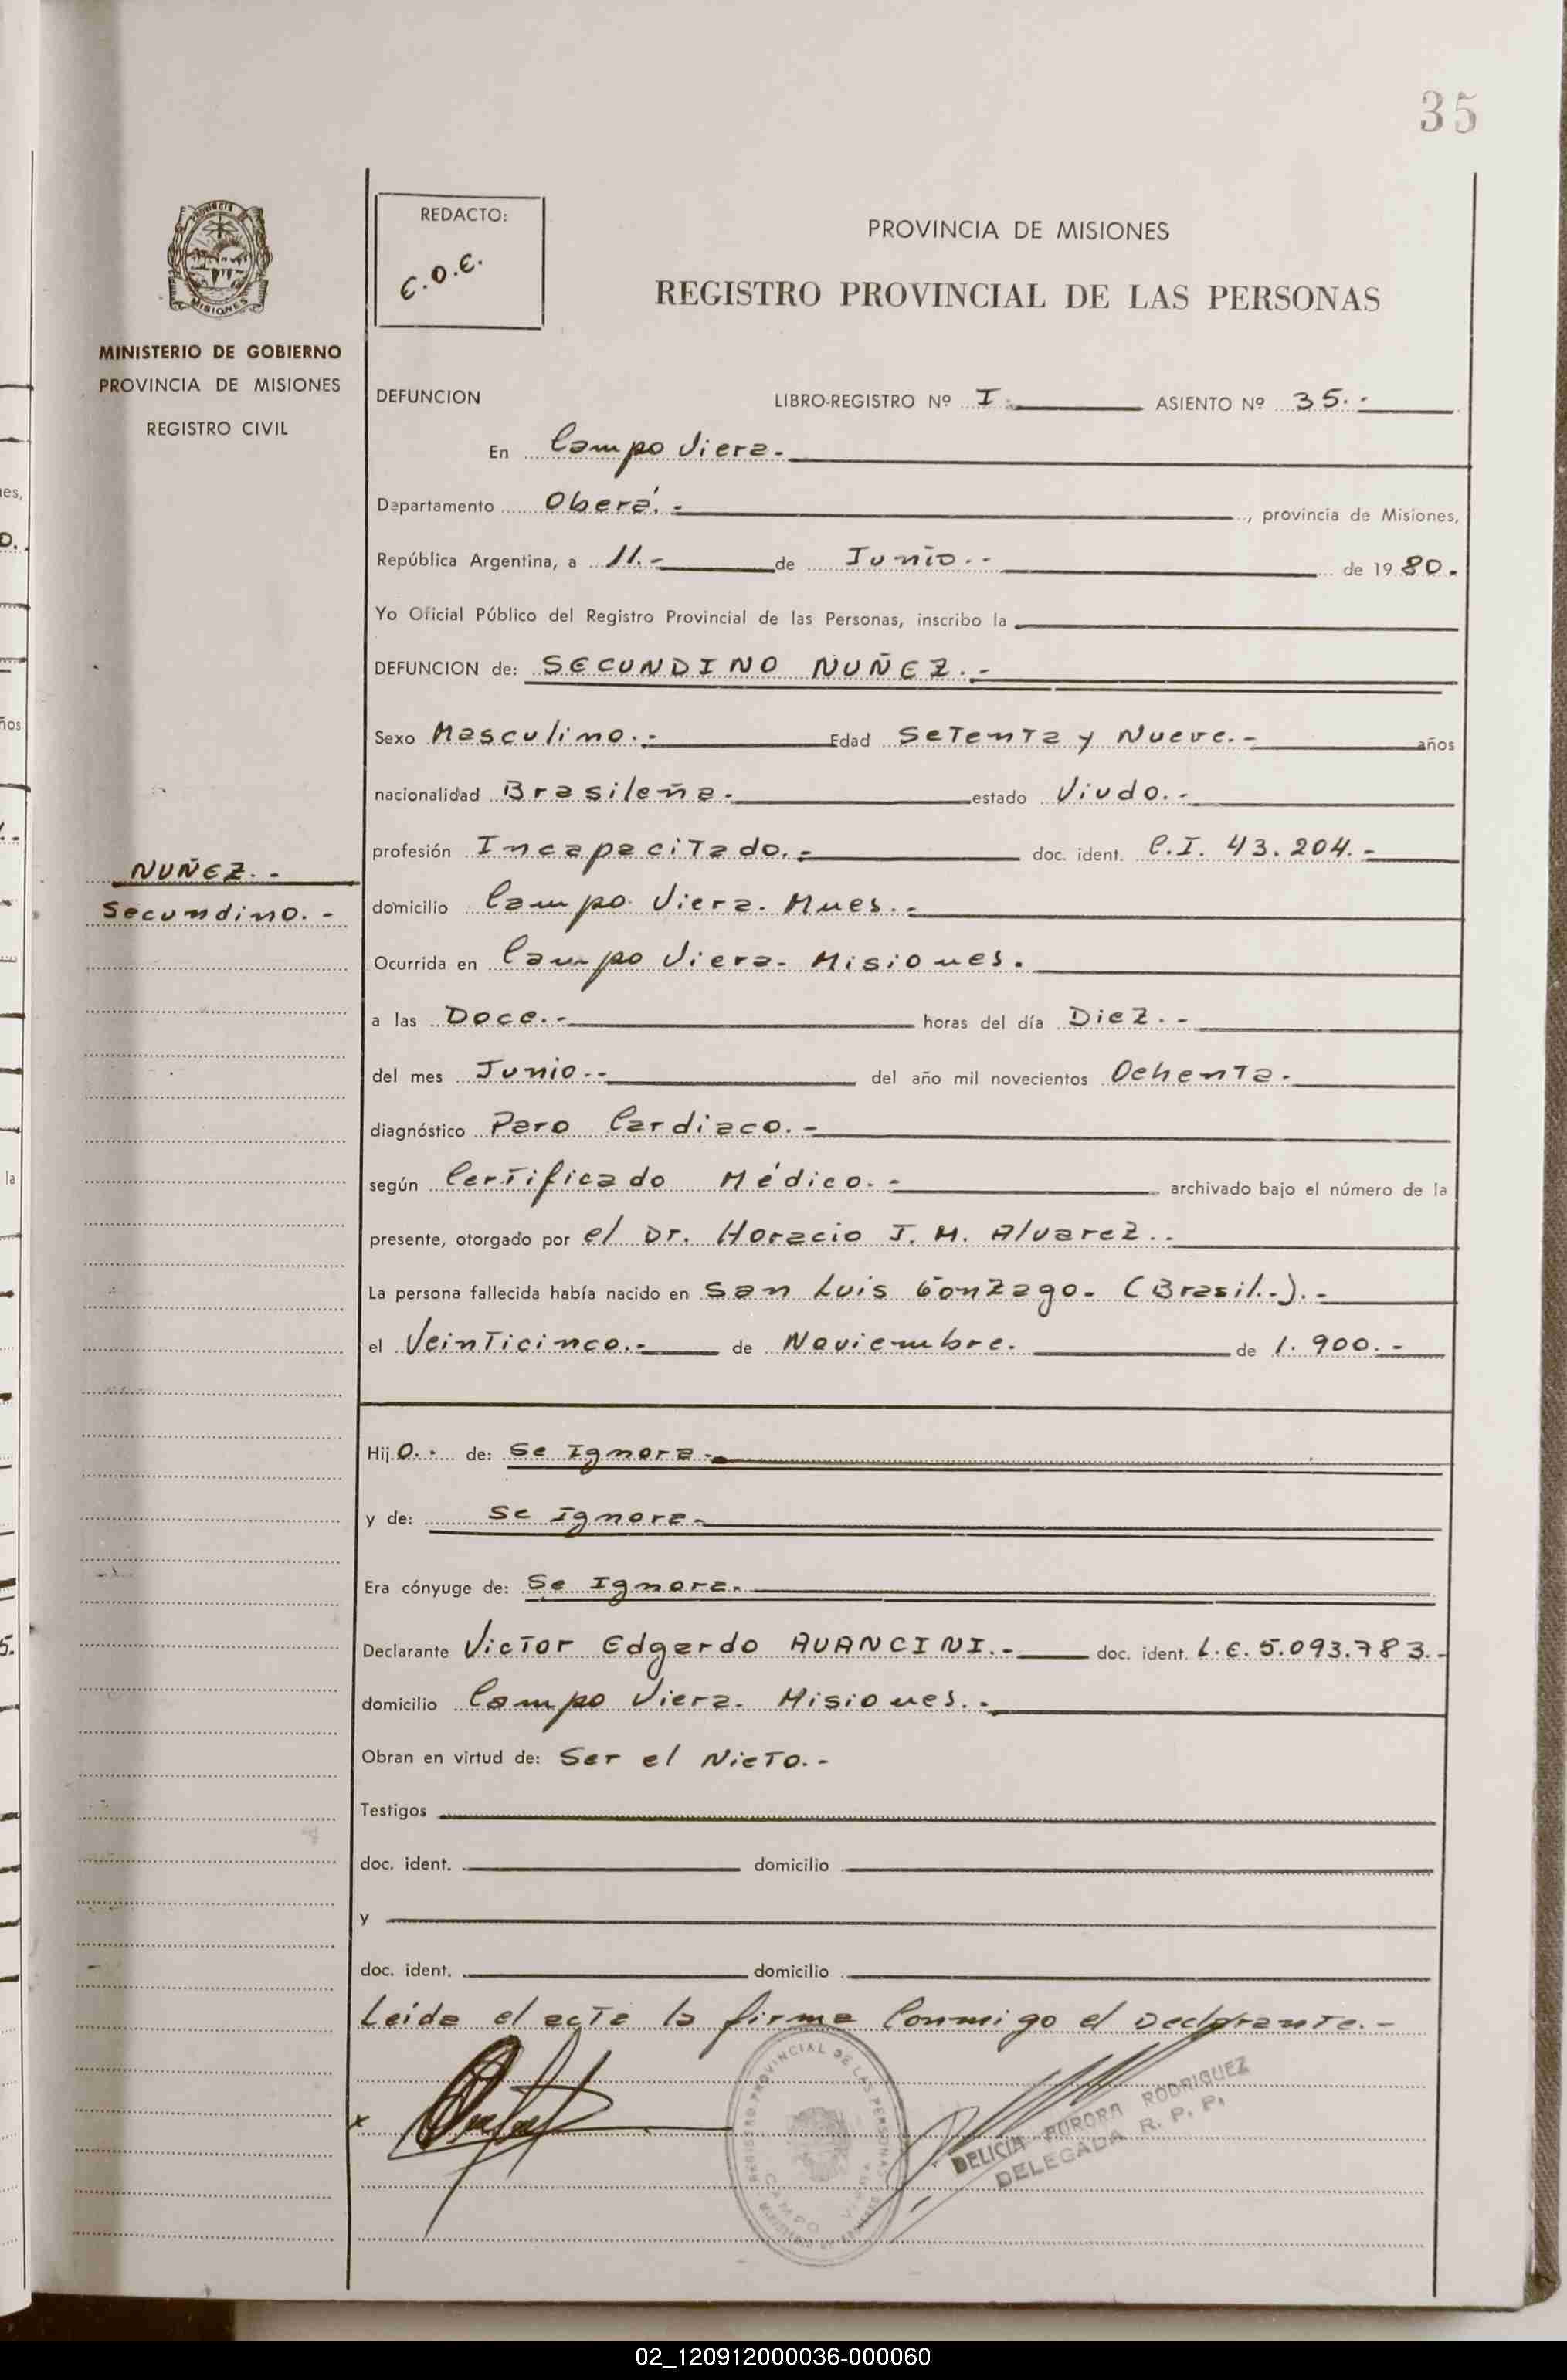 35
REDACTO:
E.O.E.
PROVINCIA DE MISIONES
REGISTRO PROVINCIAL DE LAS PERSONAS
MISIONES
MINISTERIO DE GOBIERNO
PROVINCIA DE MISIONES
REGISTRO CIVIL
DEFUNCION LIBRO-REGISTRO Nº I.- ASIENTO Nº 35.-
En Campo Viera.-
Departamento Oberá.-, provincia de Misiones,
República Argentina, a 11.- de Junio.- de 1980.-
Yo Oficial Público del Registro Provincial de las Personas, inscribo la
DEFUNCION de: SECUNDINO NUÑEZ.-
Sexo Masculino.- Edad Setenta y Nueve.- años
nacionalidad Brasileña.- estado Viudo.-
profesión Incapacitado.- doc. ident. C.I. 43.204.-
NUÑEZ.-
Secundino.-
domicilio Campo Viera. Mnes.-
Ocurrida en Campo Viera- Misiones.
a las Doce.- horas del día Diez.-
del mes Junio.- del año mil novecientos Ochenta.-
diagnóstico Paro Cardiaco.-
según Certificado Médico.- archivado bajo el número de la
presente, otorgado por el Dr. Horacio J. M. Alvarez..
La persona fallecida había nacido en San Luis Gonzago- (Brasil.-).-
el Veinticinco.- de Noviembre. de 1.900.-
Hijo.- de: Se Ignora.-
y de: Se ignora.-
Era cónyuge de: Se Ignora.
Declarante Victor Edgardo AVANCINI.- doc. ident. L.E. 5.093.783.-
domicilio Campo Viera. Misiones.-
Obran en virtud de: Ser el Nieto.-
Testigos
doc. ident. domicilio
y
doc. ident. domicilio
Leida el acta la firma Conmigo el Declarante.-
REGISTRO PROVINCIAL DE LAS PERSONAS
CAMPO VIERA
DELICIA AURORA RODRIGUEZ
DELEGADA R. P. P.
02_120912000036-000060